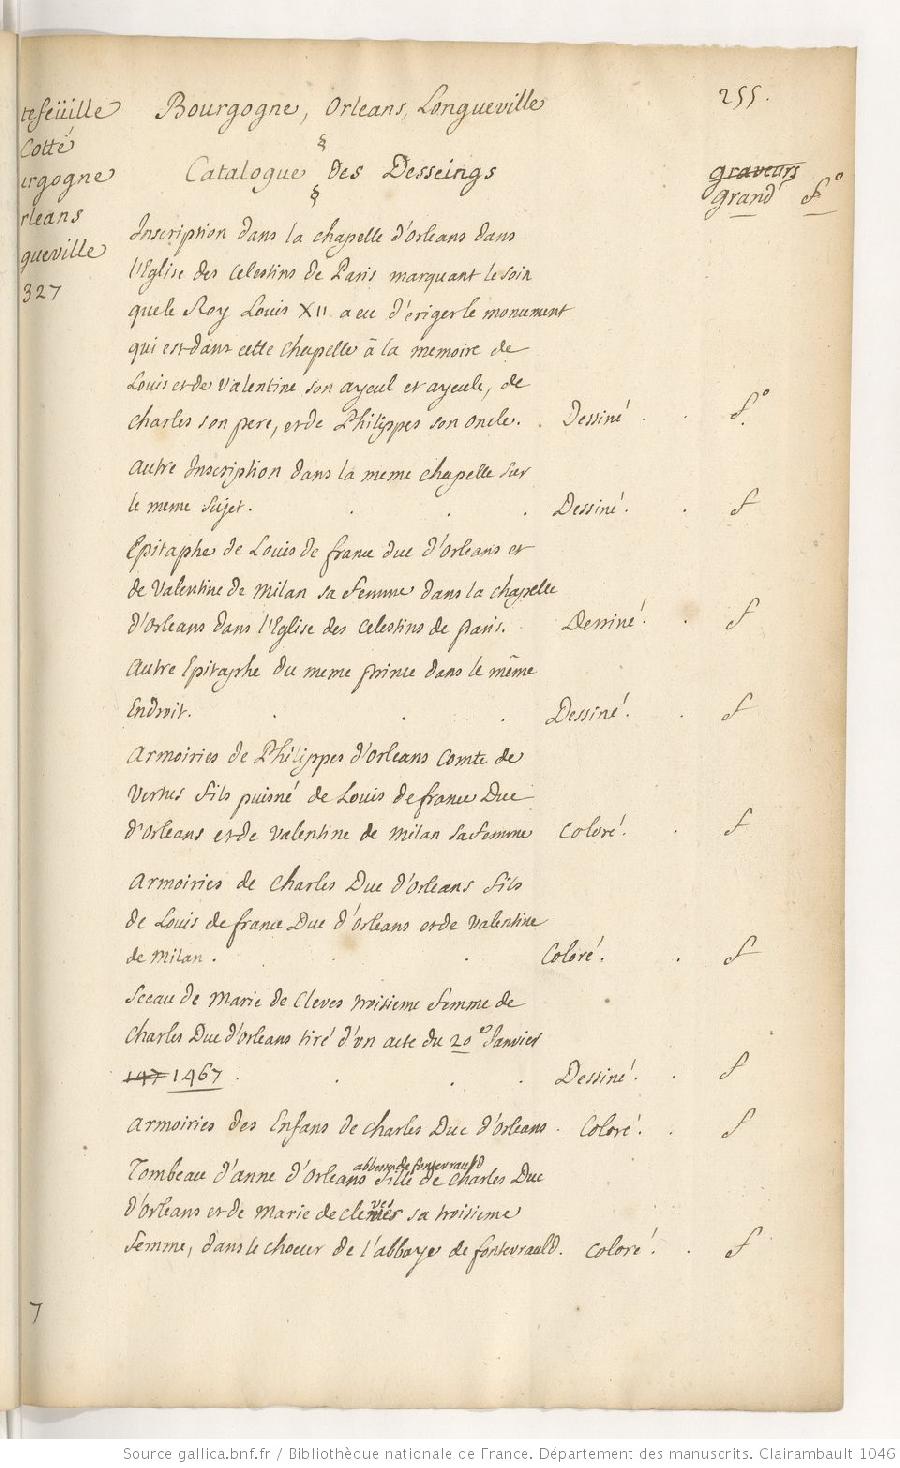 255.
tefeüille
Cotté
urgogne
rleans
gueville
327
Bourgogne, Orleans, Longueville
§
Catalogue des Desseings
§
graveurs
grand fo
Inscription dans la chapelle d'Orleans dans
l'Eglise des Celestins de Paris marquant le soin
que le Roy Louis XII a eu d'eriger le monument
qui est dans cette chapelle à la memoire de
Louis et de Valentine son ayeul et ayeule, de
Charles son pere, et de Philippes son oncle. . Dessiné . . fo.
Autre Inscription dans la meme chapelle sur
le meme sujet. . . . Dessiné. . f
Epitaphe de Louis de france duc d'Orleans et
de Valentine de Milan sa femme dans la chapelle
d'Orleans dans l'Eglise des Celestins de paris. Dessiné. . f
Autre Epitaphe du meme prince dans le même
Endroit. . . . Dessiné. . f
Armoiries de Philippes d'Orleans Comte de
Vertus fils puisné de Louis de france Duc
d'Orleans et de Valentine de Milan sa femme Coloré. . f
Armoiries de Charles Duc d'Orleans fils
de Louis de france Duc d'Orleans et de Valentine
de Milan . . . Coloré. . f
Sceau de Marie de Cleves troisieme femme de
Charles Duc d'Orleans tiré d'un acte du 20e Janvier
147 1467 . . . . Dessiné. . f
Armoiries des Enfans de Charles Duc d'Orleans . Coloré. . f
abbesse de fontevrauld
Tombeau d'anne d'Orleans fille de Charles Duc
d'Orleans et de Marie de Cleves sa troisieme
femme, dans le choeur de l'abbaye de fontevrauld. Coloré. . f
7
Source gallica.bnf.fr / Bibliothèque nationale de France. Département des manuscrits. Clairambault 1046